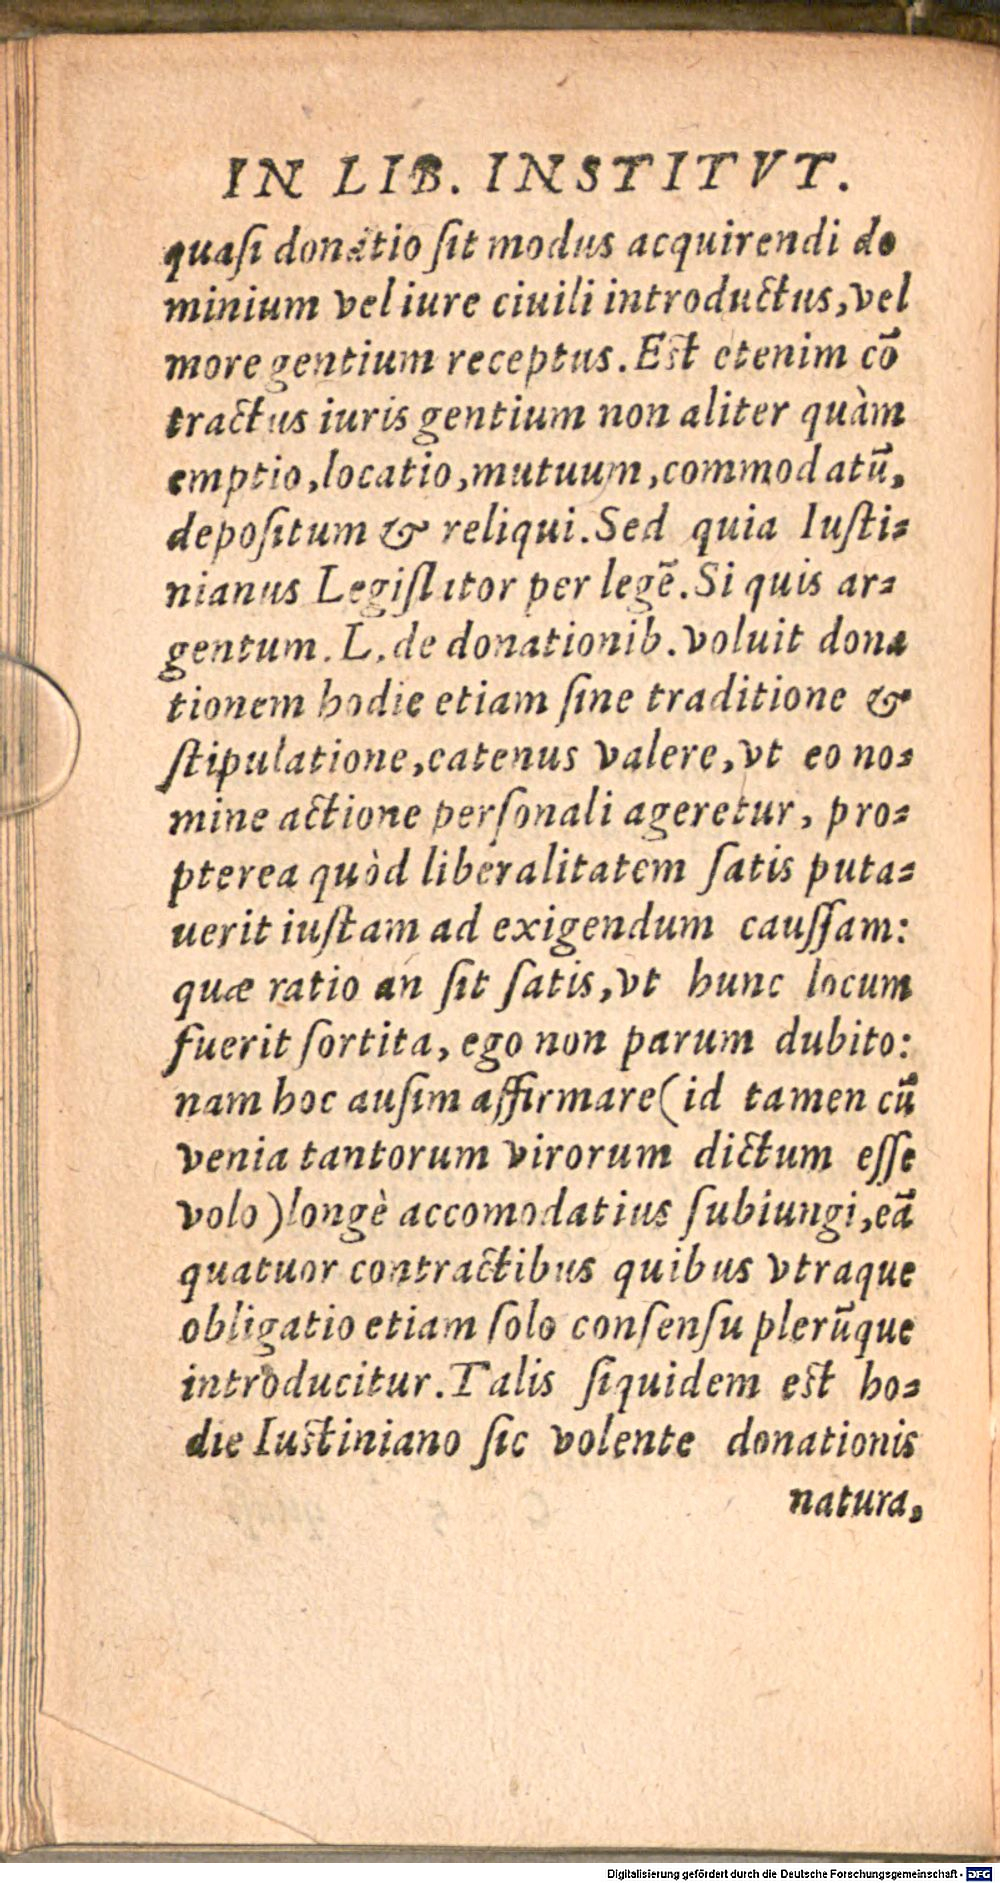 IN LIB. INSTITVT.
quaſi donatio ſit modus acquirendi do
minium vel iure ciuili introductus, vel
more gentium receptus. Est etenim cō
tractus iuris gentium non aliter quàm
emptio, locatio, mutuum, commodatū,
depoſitum & reliqui. Sed quia Iuſti-
nianus Legiſlator per legē. Si quis ar-
gentum. L. de donationib. voluit dona
tionem hodie etiam ſine traditione &
ſtipulatione, eatenus valere, vt eo no-
mine actione perſonali ageretur, pro-
pterea quòd liberalitatem ſatis puta-
uerit iuſtam ad exigendum cauſſam:
quæ ratio an ſit ſatis, vt hunc locum
fuerit ſortita, ego non parum dubito:
nam hoc auſim affirmare (id tamen cū
venia tantorum virorum dictum eſſe
volo) longè accomodatius ſubiungi, eā
quatuor contractibus quibus vtraque
obligatio etiam ſolo conſenſu plerūque
introducitur. Talis ſiquidem est ho-
die Iustiniano ſic volente donationis
natura,
Digitalisierung gefördert durch die Deutsche Forschungsgemeinschaft - DFG